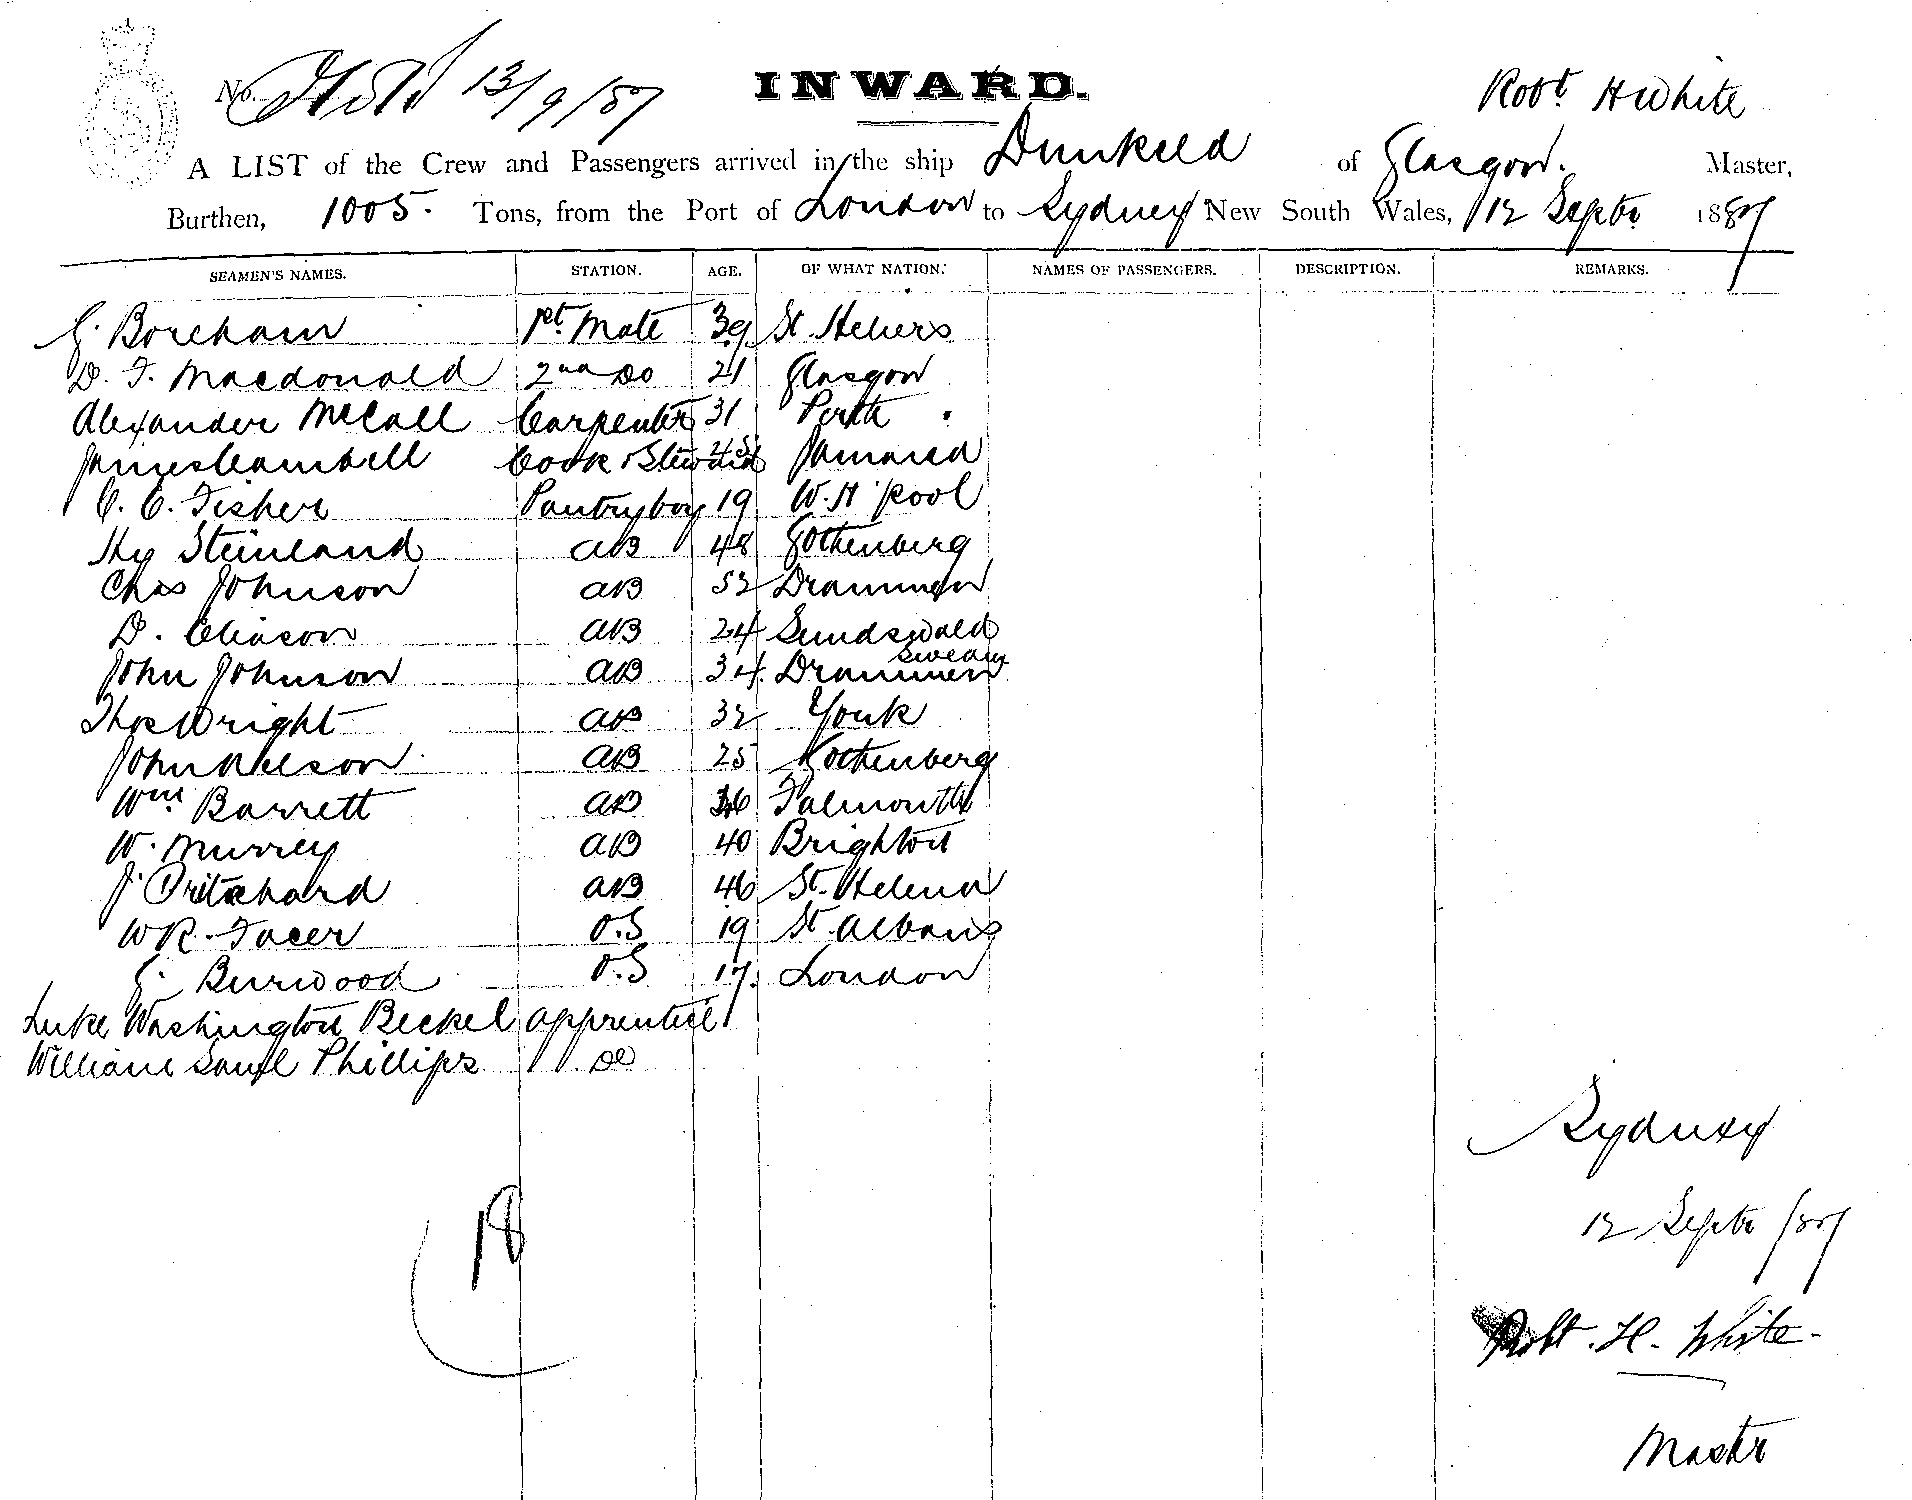 No. 13/9/87
INWARD.
Robt H White
A LIST of the Crew and Passengers arrived in the ship Dunkeld of Glasgow. Master,
Burthen, 1005. Tons, from the Port of London to Sydney New South Wales, 12 Septr 1887
SEAMEN'S NAMES. STATION. AGE. OF WHAT NATION. NAMES OF PASSENGERS. DESCRIPTION. REMARKS.
G. Boreham 1st Mate 39 St Heliers
D. F. Macdonald 2nd Do 21 Glasgow
Alexander McCall Carpenter 31 Perth
James Cambell Cook & Steward Jamaica
C. C. Fisher Pantryboy 19 W. H'pool
Hy Steinland AB 48 Gothenberg
Chas Johnson AB 52 Drammen
D. Eliason AB 24 Sundswald
Sweden
John Johnson AB 34. Drammen
Thos Wright AB 32 York
John Nilson AB 25 Gothenberg
Wm Barrett AB 36 Falmouth
W. Murrey AB 40 Brighton
J. Pritchard AB 46 St. Helena
W R. Facer O.S 19 St Albans
G. Burwood O.S 17. London
Luke Washington Beckel apprentice
William Saml Phillips Do
Sydney
18
12 Septr /87
Robt. H. White.
Master